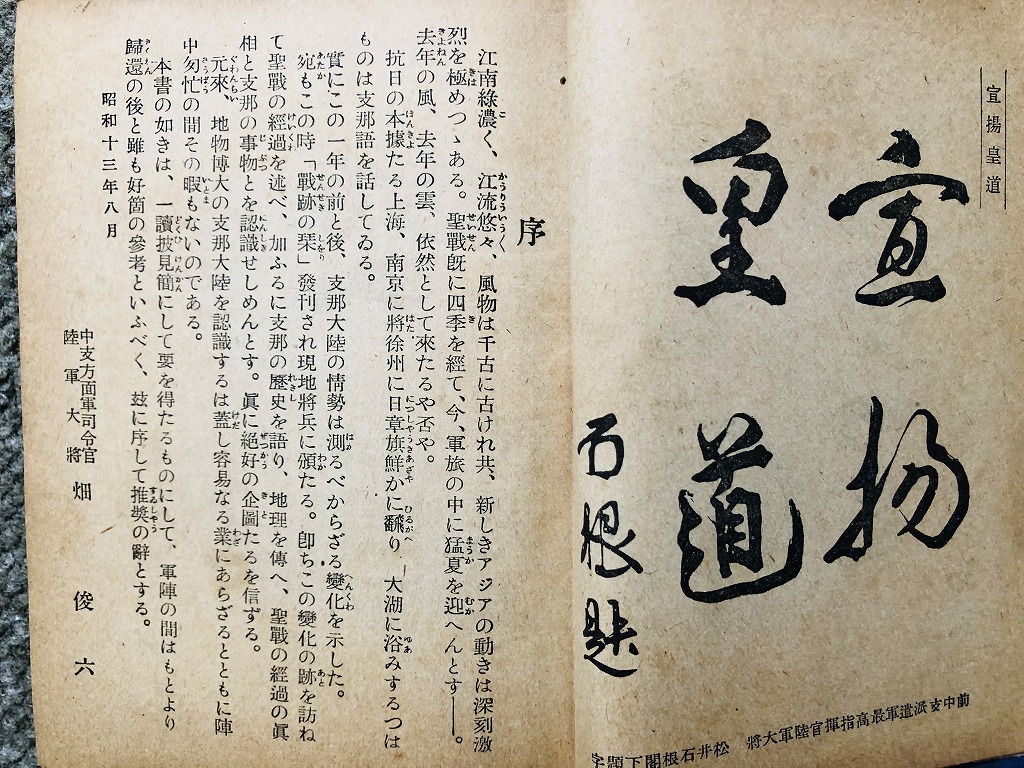 宣揚皇道
宣揚
皇道
石根題
前中支派遣軍最高指揮官陸軍大將 松井石根閣下題字
序
江南綠濃く、江流悠々、風物は千古に古けれ共、新しきアジアの動きは深刻激
烈を極めつゝある。聖戰旣に四季を經て、今、軍旅の中に猛夏を迎へんとす――。
去年の風、去年の雲、依然として來たるや否や。
抗日の本據たる上海、南京に將徐州に日章旗鮮かに飜り、大湖に浴みするつは
ものは支那語を話してゐる。
實にこの一年の前と後、支那大陸の情勢は測るべからざる變化を示した。
宛もこの時「戰跡の栞」發刊され現地將兵に頒たる。卽ちこの變化の跡を訪ね
て聖戰の經過を述べ、加ふるに支那の歷史を語り、地理を傳へ、聖戰の經過の眞
相と支那の事物とを認識せしめんとす。眞に絕好の企圖たるを信ずる。
元來、地物博大の支那大陸を認識するは蓋し容易なる業にあらざるとともに陣
中匆忙の間その暇もないのである。
本書の如きは、一讀披見簡にして要を得たるものにして、軍陣の間はもとより
歸還の後と雖も好箇の參考といふべく、玆に序して推奬の辭とする。
昭和十三年八月
中支方面軍司令官
陸軍大將 畑俊六